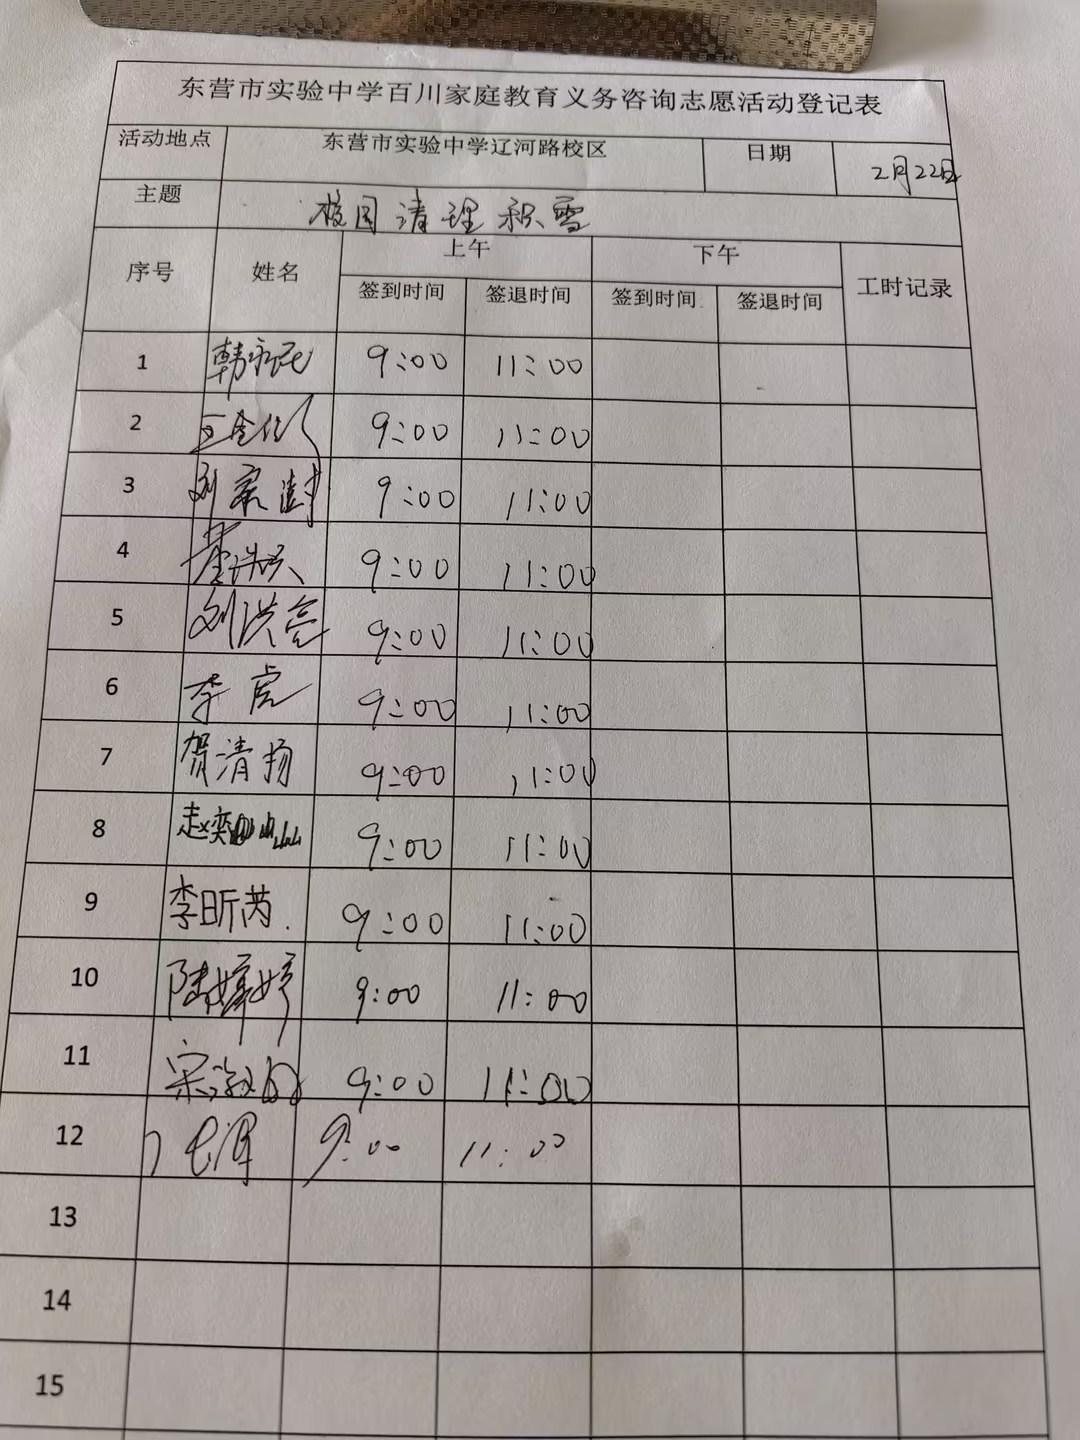 东营市实验中学百川家庭教育义务咨询志愿活动登记表
活动地点 东营市实验中学辽河路校区 日期 2月22日
主题 校园清理积雪
序号 姓名 上午 下午 工时记录
签到时间 签退时间 签到时间 签退时间
1 韩 9:00 11:00
2 9:00 11:00
3 刘 9:00 11:00
4 9:00 11:00
5 刘洪亮 9:00 11:00
6 李虎 9:00 11:00
7 贺清扬 9:00 11:00
8 赵奕 9:00 11:00
9 李昕芮. 9:00 11:00
10 陆婷婷 9:00 11:00
11 宋 9:00 11:00
12 9:00 11:00
13
14
15